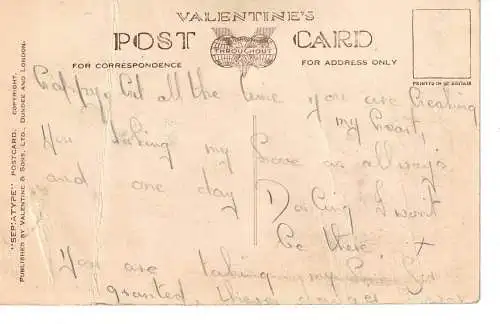 VALENTINE'S
POST CARD
THROUGHOUT
FOR CORRESPONDENCE
FOR ADDRESS ONLY
PRINTED IN GT. BRITAIN
"SEPIATYPE" POSTCARD. COPYRIGHT.
PUBLISHED BY VALENTINE & SONS, LTD., DUNDEE AND LONDON.
all the time you are breaking
my heart,
You taking my love as allways
and one day Darling I wont
be there x
You are taking my
granted, these